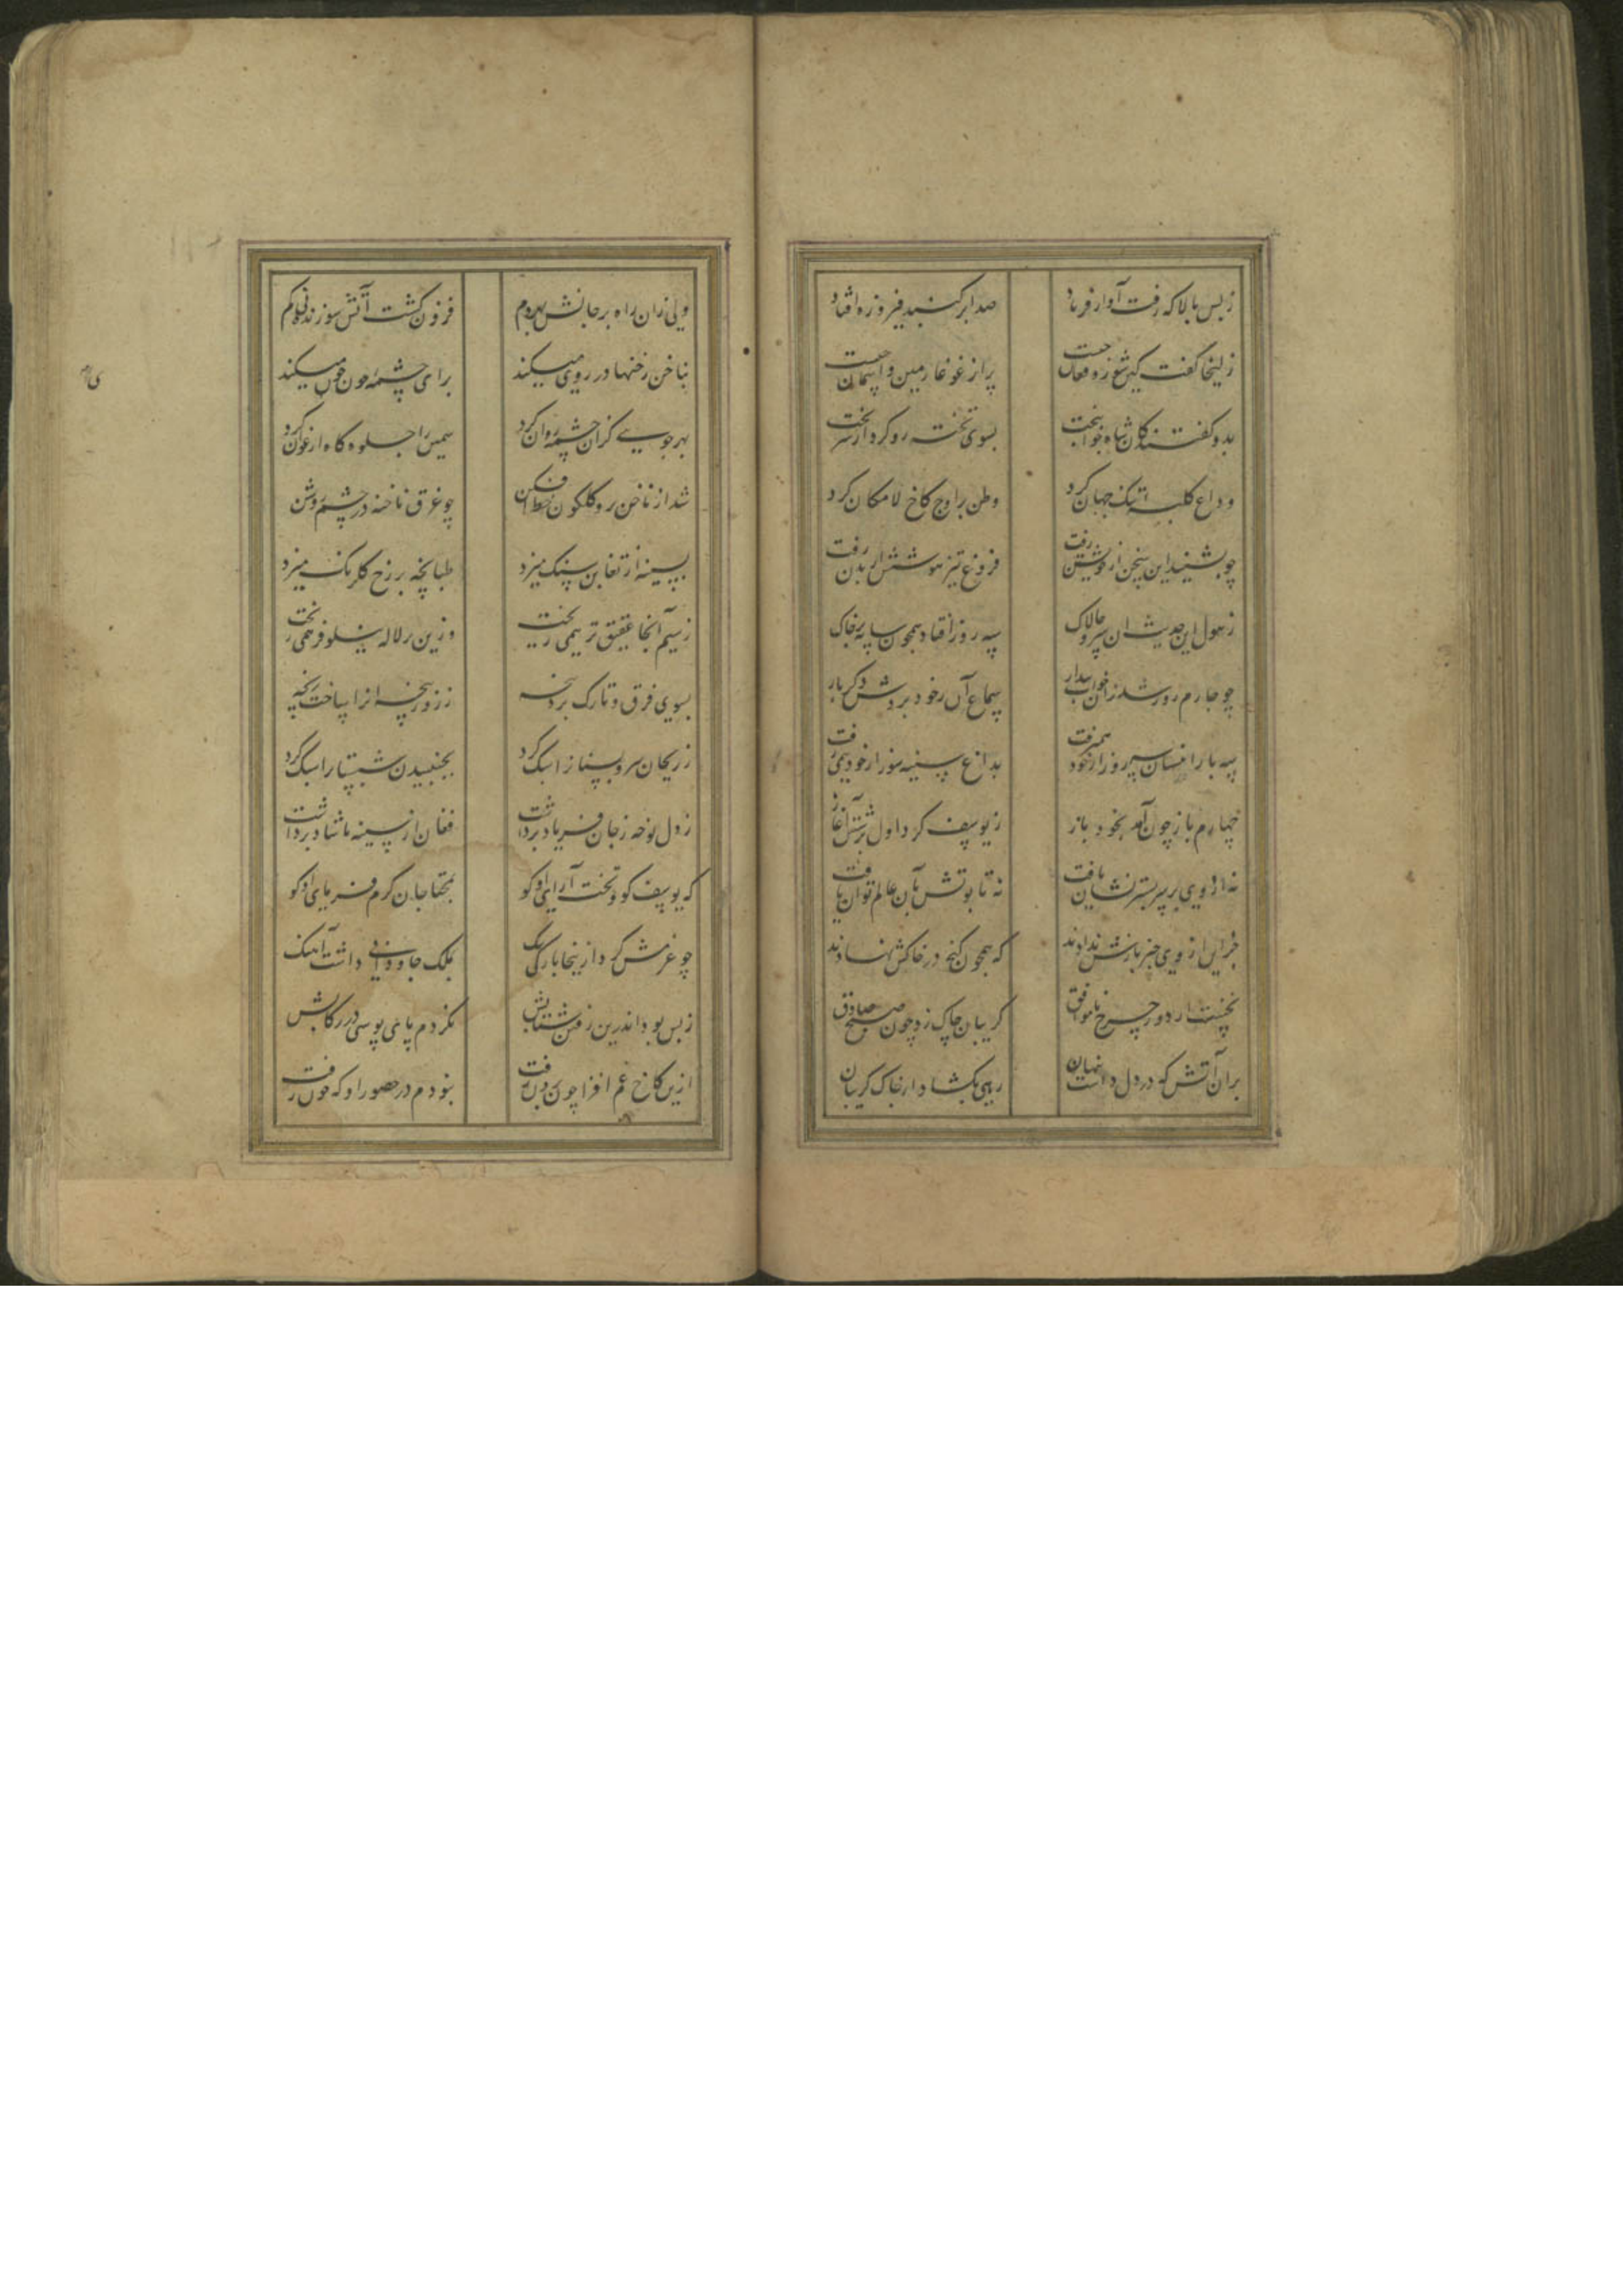 ز بس بالا که رفت آواز فریاد
صدا بر گنبد فیروزه افتاد
زلیخا گفت کین شور و فغان چیست
پر از غوغا زمین و آسمان چیست
بدو گفتند کان شاه جوانبخت
بسوی تخته رو کرد از سر تخت
وداع کلبه تنگ جهان کرد
وطن بر اوج کاخ لامکان کرد
چو بشنید این سخن از خویشتن رفت
فروغ نیر هوشش ز تن رفت
ز هول این حدیث آن سرو چالاک
سه روز افتاد همچون سایه بر خاک
چو چارم روز شد زان خواب بیدار
سماع آن ز خود بردش دگر بار
سه بار انسان سه روز از خود همیرفت
بداغ سینه سوز از خود همی رفت
چهارم باز چون آمد بخود باز
ز یوسف کرد اول پرسش آغاز
نه از وی بر سر بستر نشان یافت
نه تابوتش بآن عالم توان یافت
جز این از وی خبر بازش ندادند
که همچون گنج در خاکش نهادند
نخست از دور چرخ ناموافق
گریبان چاک زد چون صبح صادق
بران آتش که در دل داشت پنهان
رهی بگشاد از چاک گریبان
ولی زان راه بر جانش بهر دم
فزون گشت آتش سوزنده نی کم
بناخن رخنها در روی میکند
برای چشمه خون جوی میکند
بهر جویی کزان چشمه روان کرد
سمن را جلوه گاه ارغوان کرد
شد از ناخن رو گلگون خط افکن
چو غرق ناخنه در چشم روشن
بسینه از تغابن سنگ میزد
طبانچه بر رخ گلرنگ میزد
ز سیم آنجا عقیق تر همی ریخت
وزین بر لاله نیلوفر همی ریخت
بسوی فرق و تارک برد پنجه
ز زور پنجه آنرا ساخت رنجه
ز ریحان سرو بستان را سبک کرد
بچیدن سنبلستان را سبک کرد
ز دل نوحه ز جان فریاد برداشت
فغان از سینه ناشاد برداشت
که یوسف کو و تخت آرایی او کو
بمحتاجان کرم فرمایی او کو
چو عزمش کرد ازینجا بارگی تنگ
بملک جاودانی داشت آهنگ
ز بس بود اندرین رفتن شتابش
نکردم پای بوسی در رکابش
ازین کاخ غم افزا چون برون رفت
نبودم در حضور او که چون رفت